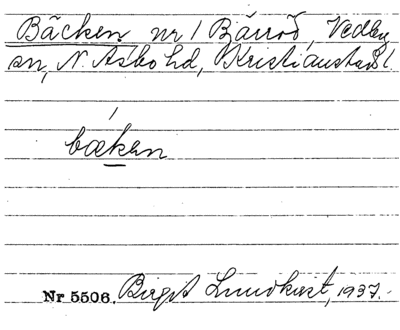 Bäcken nr 1 Bärröd, Vedby
sn, N. Åsbo hd, Kristianstads l.
bæken
Nr 5506. Birgit Lundkvist, 1937.